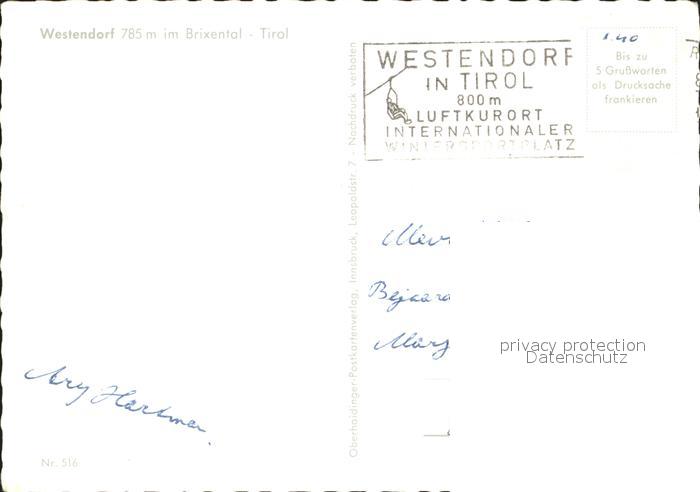 Westendorf 785 m im Brixental - Tirol
Ary Hartman.
Nr. 516
Oberhaidinger-Postkartenverlag, Innsbruck, Leopoldstr. 7 - Nachdruck verboten
WESTENDORF
IN TIROL
800 m
LUFTKURORT
INTERNATIONALER
WINTERSPORTPLATZ
1.40
Bis zu
5 Grußworten
als Drucksache
frankieren
privacy protection
Datenschutz